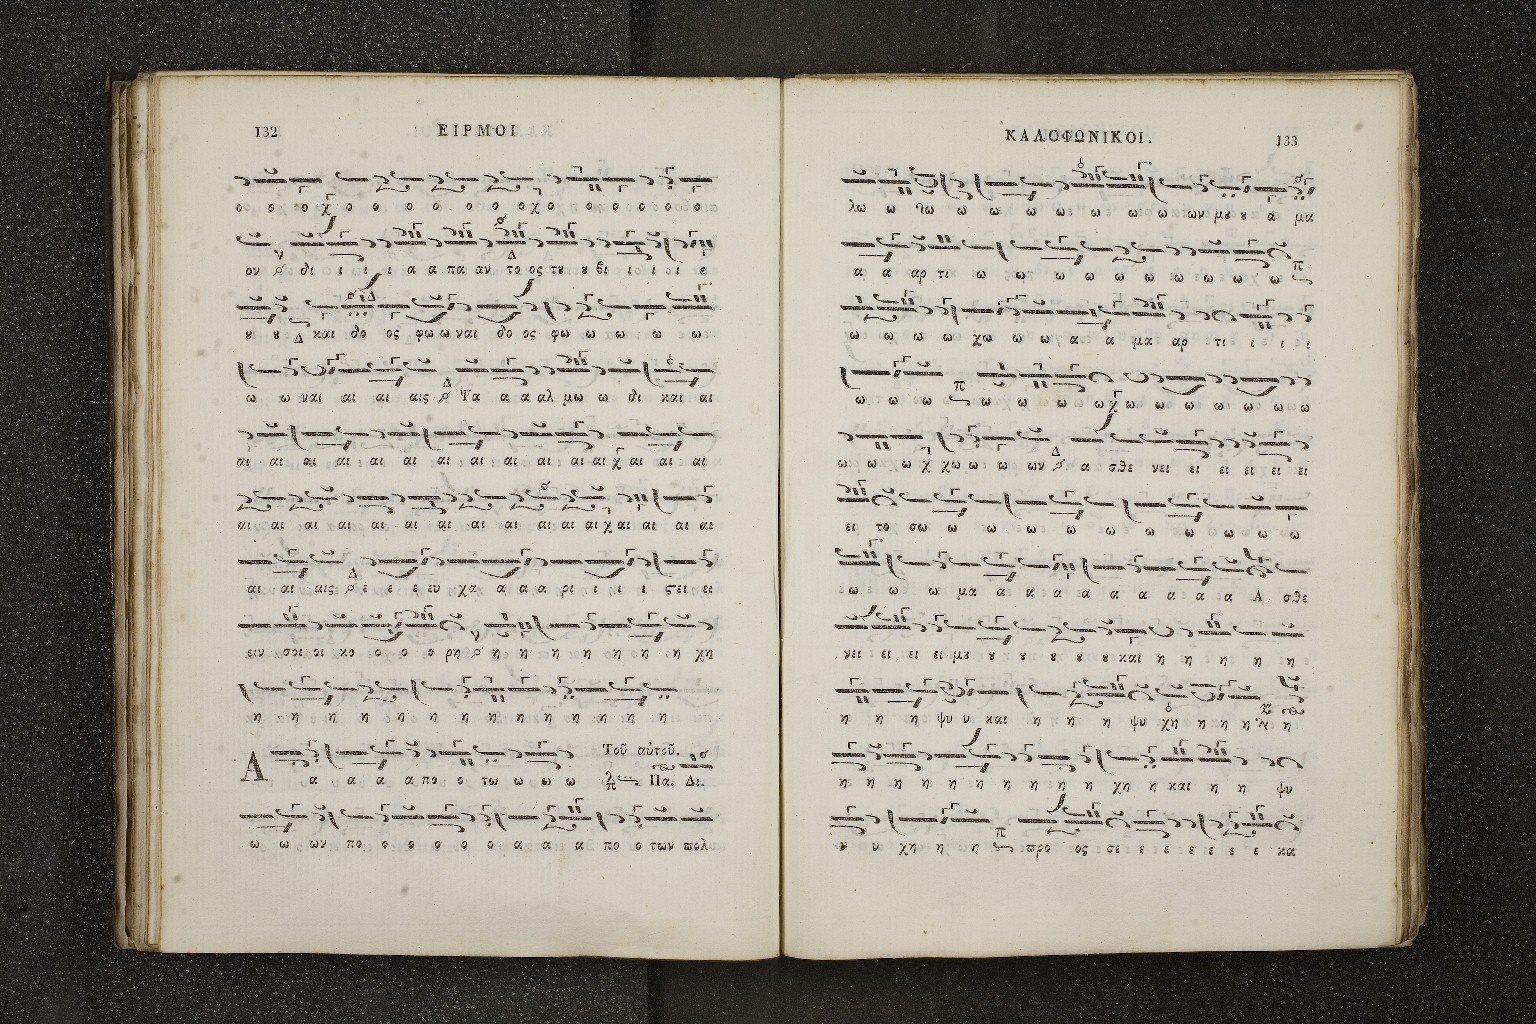 132
ΕΙΡΜΟΙ
ο ο ο χ ο ο ο ο ο ο ο χο ο ο ο ο ο
ον δι ι ι ι α α πα αν το ος τȣ ȣ βι ι ι ι ε
ȣ ȣ Δ και δο ος φω ω ναι δο ος φω ω ω ω ω
ω ω ναι αι αι αις Δ Ψα α α αλ μω ω δι και αι
αι αι αι αι αι αι αι αι αι αι αι αι χ αι αι αι
αι αι αι αι αι αι αι αι αι αι αι αι χ αι αι αι αι
αι αι αις Δ ε ε ε ευ χα α α α ρι ι ι ι ϛει ει
ειν σοι οι κο ο ο ο ρη η η η η η η η χη
η η η η η η η η η η η η η
Α α α α α πο ο τω ω ω ω
Τοῦ αὐτοῦ.
Πα. Δι.
ω ω ων πο ο ο ο ο ο α α α πο ο των πολ
ΚΑΛΟΦΩΝΙΚΟΙ.
133
λω ω ω ω ω ω ω ω ω ω ων μȣ ȣ α μα
α α αρ τι ω ω ω ω ω ω ω ω ω ω π
ω ω ω ω χω ω ω α α μα αρ τι ι ι ι
ω ω ω π ω ω ω ω χ ω ω ω ω ω ω ω
ω ω ω χ χω ω ω ων Δ α σθε νει ει ει ει ει ει
ει το σω ω ω ω ω ω ω ω ω ω ω
ω ω ω μα α α α α α α α α α Α σθε
νει ει ει ει μȣ ȣ ȣ ȣ ȣ ȣ και η η η η η
η η η ψυ υ και η η η ψυ χη η η η η
η η η η η η η η η η χη η και η η ψυ
υ υ χη η η π προ ος σε ε ε ε ε ε ε κα